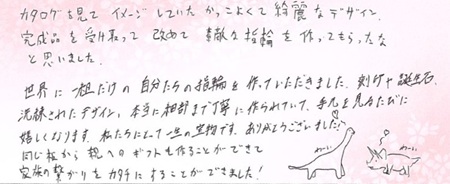 カタログを見て イメージしていた かっこよくて 綺麗なデザイン。
完成品を受け取って 改めて 素敵な指輪を作ってもらったな
と思いました。
世界に一組だけの 自分たちの指輪を作っていただきました。刻印や誕生石、
洗練されたデザイン、本当に細部まで丁寧に作られていて、手元を見るたびに
嬉しくなります。私たちにとって一生の宝物です。ありがとうございました!
同じ板から 親へのギフトも作ることができて
家族の繋がりをカタチにすることができました!